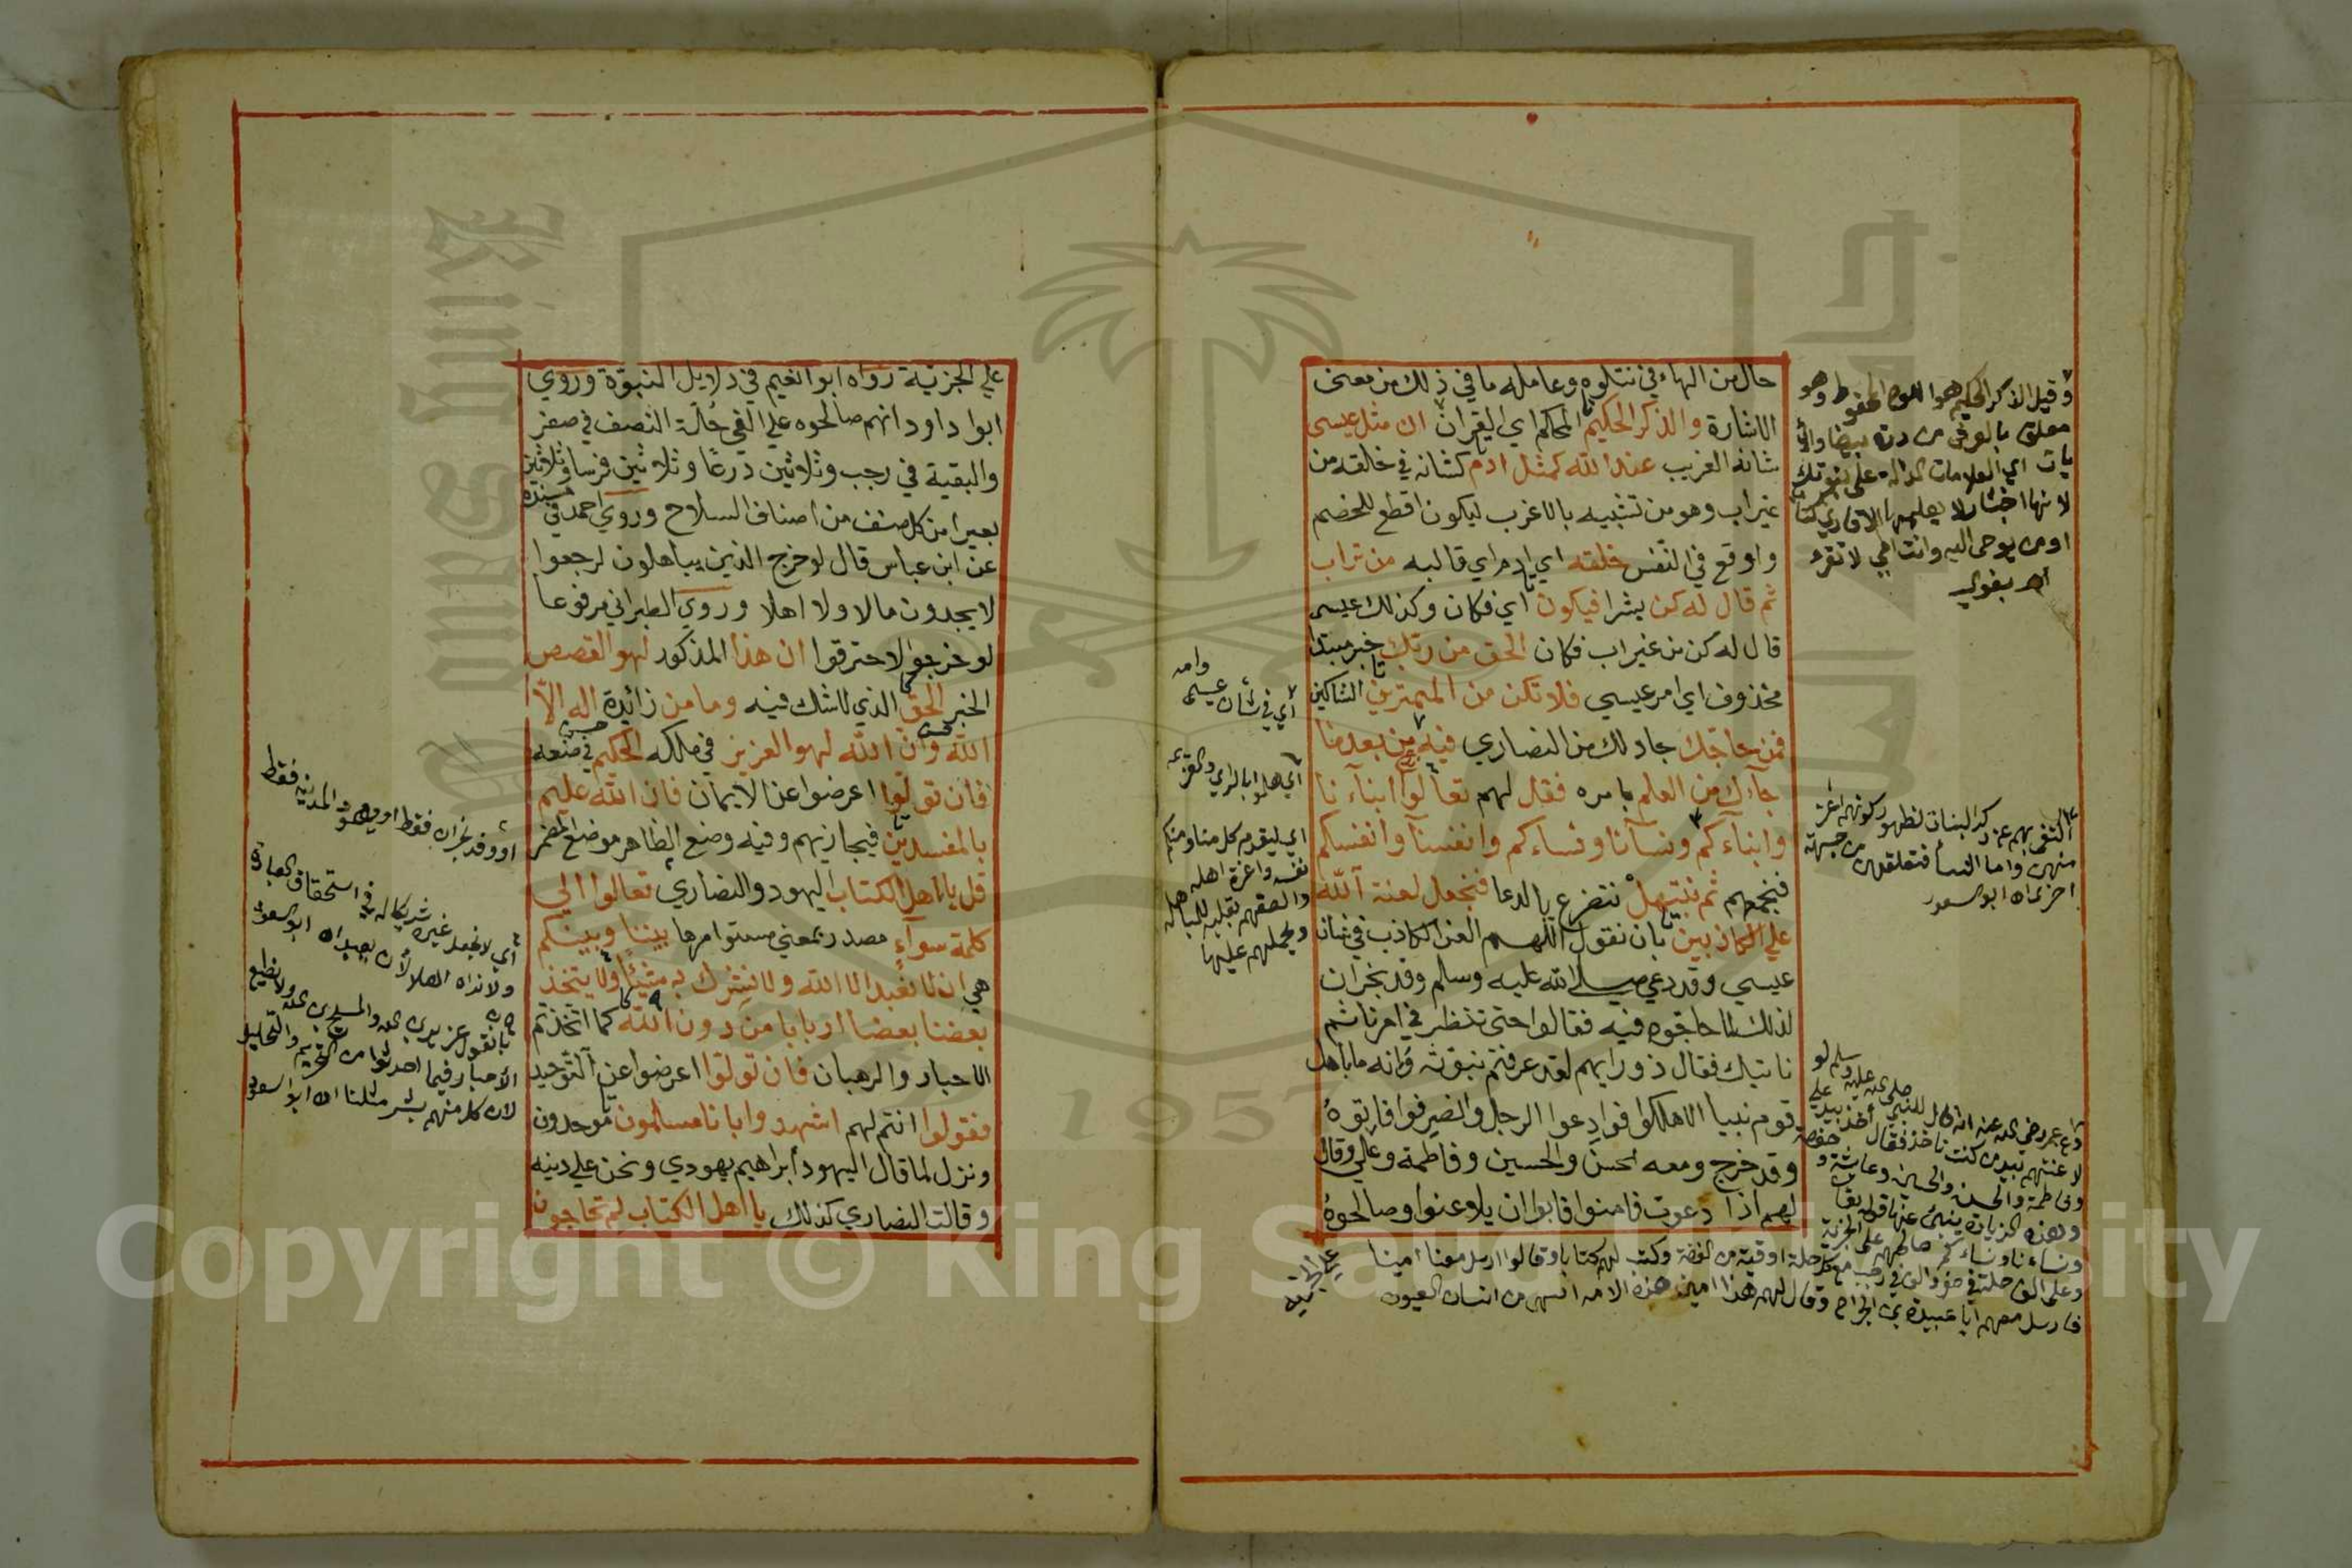 حال من الهاء في نتلوه وعامله ما في ذلك من معنى
الاشارة والذكر الحكيم المحكم اي القران ان مثل عيسى
شانه الغريب عند الله كمثل ادم كشانه في خلقه من
غير اب وهو من تشبيه بالاغرب ليكون اقطع للخصم
واوقع في النفس خلقه اي ادم اي قالبه من تراب
ثم قال له كن بشرا فيكون اي فكان وكذلك عيسى
قال له كن من غير اب فكان الحق من ربك خبر مبتدا
محذوف اي امر عيسي فلا تكن من الممترين الشاكين
فمن حاجك جادلك من النصاري فيه من بعد ما
جآءك من العلم بامره فقل لهم تعالوا ابنآءنا
وابنآءكم ونسآنا ونساءكم وانفسنا وانفسكم
فنجمعهم ثم نبتهل نتضرع بالدعا فنجعل لعنة الله
علي الكاذبين بان نقول اللهم العن الكاذب في شان
عيسي وقد دعي صلي الله عليه وسلم وفد نجران
لذلك لما حاجوه فيه فقالوا حتى ننظر في امرنا ثم
ناتيك فقال ذو رايهم لقد عرفتم نبوته وانه ما باهل
قوم نبيا الا هلكوا فوادعوا الرجل وانصرفوا فاتوه
وقد خرج ومعه الحسن والحسين وفاطمة وعلي وقال
لهم اذا دعوت فامنوا فابوا ان يلاعنوا وصالحوه
علي الجزية
وقيل الذكر الحكيم هو اللوح المحفوظ وهو
معلق بالعرش من درة بيضا والآ
يات اي العلامات الدالة على نبوتك
لانها اخبار لا يعلمها الا قاري
او من يوحى اليه وانت امي لا تقرء
اه بغوي
وامه
اي في شان عيسى
اي هلموا بالراي والعزيمة
اي ليقدم كل منا ومنكم
نفسه واعزة اهله
والصقهم بقلبه للمباهلة
ويحملهم عليها
منهن واما النسآ فتعلقهن من جهة
اخرى اه ابو السعود
وعلى الفي حلة في صفر والف في رجب مع كل حلة اوقية من الفضة وكتب لهم كتابا وقالوا ارسل معنا امينا
فارسل معهم ابا عبيدة بن الجراح وقال لهم هذا امين هذه الامه
علي الجزية رواه ابوا نعيم في دلايل النبوة وروي
ابوا داود انهم صالحوه علي الفي حلة النصف في صفر
والبقية في رجب وثلاثين درعا وثلاثين فرسا وثلاثين
بعيرا من كل صنف من اصناف السلاح وروي احمد في مسنده
عن ابن عباس قال لو خرج الذين يباهلون لرجعوا
لا يجدون مالا ولا اهلا وروي الطبراني مرفوعا
لو خرجوا لاحترقوا ان هذا المذكور لهو القصص
الخبر الحق الذي لا شك فيه وما من زائدة اله الا
الله وان الله لهو العزيز في ملكه الحكيم في صنعه
فان تولوا اعرضوا عن الايمان فان الله عليم
بالمفسدين فيجازيهم وفيه وضع الظاهر موضع المضمر
قل يا اهل الكتاب اليهود والنصاري تعالوا الي
كلمة سوآء مصدر بمعني مستو امرها بيننا وبينكم
هي ان لا نعبد الا الله ولا نشرك به شيئا ولا يتخذ
بعضنا بعضا اربابا من دون الله كما اتخذتم
الاحبار والرهبان فان تولوا اعرضوا عن التوحيد
فقولوا انتم لهم اشهدوا بانا مسلمون موحدون
ونزل لما قال اليهود ابراهيم يهودي ونحن علي دينه
وقالت النصاري كذلك يا اهل الكتاب لم تحاجون
او وفد نجران فقط او يهود المدينة فقط
اي لا نجعل غيره شريكا له في استحقاق العبادة
ولا نراه اهلا لأن يعبد اه ابو السعود
بان نقول عزير بن الله والمسيح بن الله ولا نطيع
الأحبار فيما احدثوا من التحريم والتحليل
لان كل منهم بشر مثلنا اه ابو السعود
Copyright © King Saud University
1957